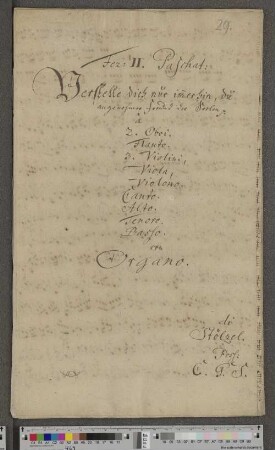 29.
Fer: II. Paschat:
Verstelle dich nur immerhin, du
angenehmer Freund der Seelen
à
2. Oboi.
Flauto.
3. Violini,
Viola,
Violono
Canto
Alto.
Tenore.
Basso.
con
Organo.
di
Stölzel.
Poss.
C. G. S.